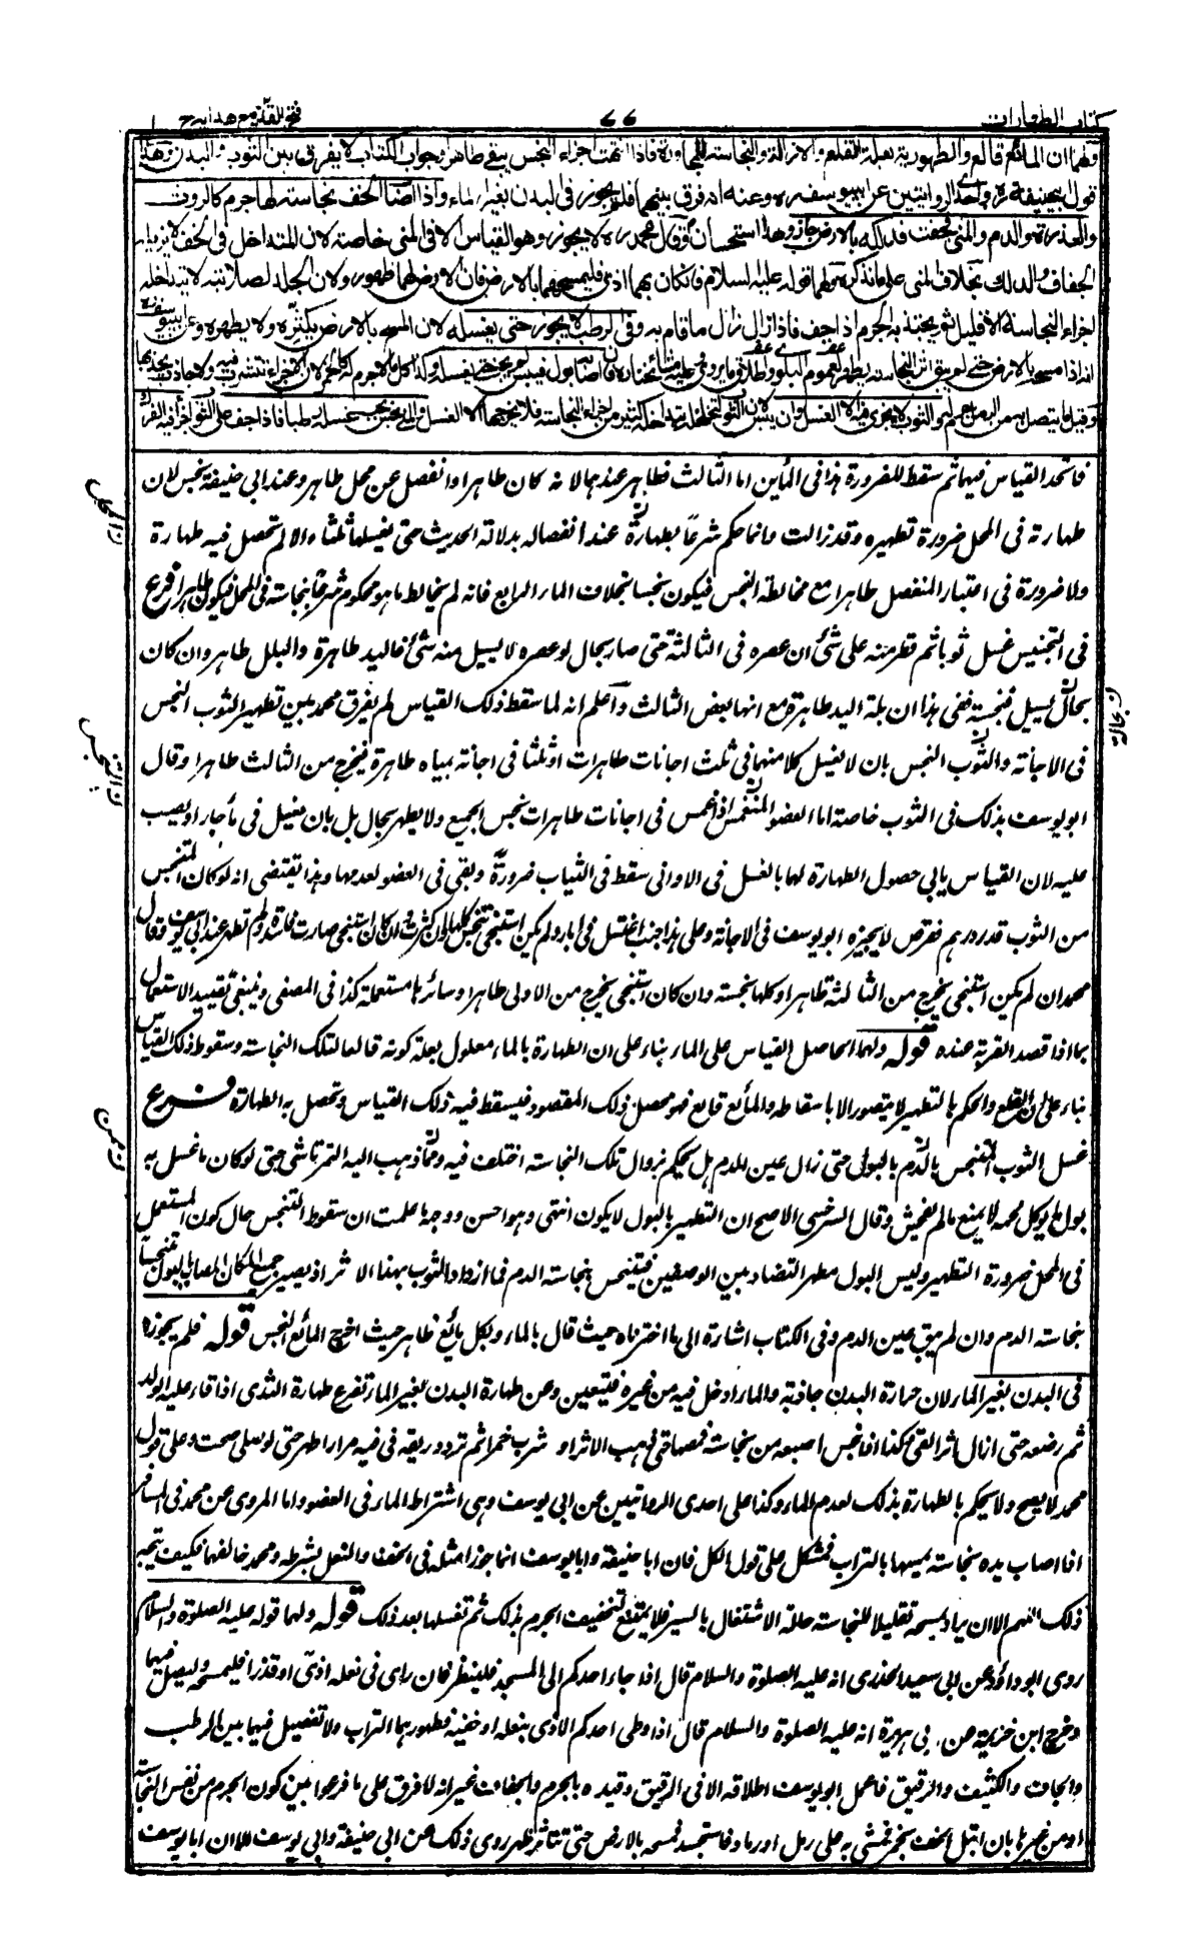 كتاب الطهارات
٦٦
فتح القدير مع هدايه ج ١
ولهما ان المائع قالع والطهورية بعلة القلع والازالة والنجاسة للمجاورة فاذا انتهت اجزاء النجس يبقى طاهرا وجواب الكتاب لا يفرق بين الثوب والبدن وهذا
قول ابي حنيفة ره واحدى الروايتين عن ابي يوسف ره وعنه انه فرق بينهما فلم يجوز في البدن بغير الماء واذا اصاب الخف نجاسة لها جرم كالروث
والعذرة والدم والمني فجفت فدلكه بالارض جاز وهذا استحسان وقال محمد ره لا يجوز وهو القياس الا في المني خاصة لان المتداخل في الخف لا يزيله
الجفاف والدلك بخلاف المني على ما نذكره ولهما قوله عليه السلام فان كان بهما اذى فليمسحهما بالارض فان الارض لهما طهور ولان الجلد لصلابته لا يتداخله
اجزاء النجاسة الا قليل ثم يجتذبه الجرم اذا جف فاذا زال زال ما قام به وفي الرطب لا يجوز حتى يغسله لان المسح بالارض يكثره ولا يطهره وعن ابي يوسف
انه اذا مسحه بالارض حتى لم يبق اثر النجاسة يطهر لعموم البلوى واطلاق ما يروى وعليه مشائخنا ره فان اصابه بول فيبس لم يجز حتى يغسله وكذا كل ما لا جرم له كالخمر لان الاجزاء تتشرب فيه ولا جاذب يجذبها
وقيل ما يتصل به من الرمل جرم له والثوب لا يجزى فيه الا الغسل وان يبس لان الثوب لتخلخله يتداخله كثير من اجزاء النجاسة فلا يخرجها الا الغسل والمني نجس يجب غسله رطبا فاذا جف على الثوب اجزأ فيه الفرك
فاتحد القياس فيهما ثم سقط للضرورة هذا في المأين اما الثالث فطاهر عندهما لانه كان طاهرا وانفصل عن محل طاهر وعند ابي حنيفة نجس لان
طهارته في المحل ضرورة تطهيره وقد زالت وانما حكم شرعا بطهارته عند انفصاله بدلالة الحديث حتى يغسلها ثلثا والا لم تحصل فيه طهارة
ولا ضرورة في اعتبار المنفصل طاهرا مع مخالطة النجس فيكون نجسا بخلاف الماء الرابع فانه لم يخالط ما هو محكوم شرعا بنجاسته في المحل فيكون طاهرا فرع
في التجنيس غسل ثوبا ثم قطر منه على شئ ان عصره في الثالثة حتى صار بحال لو عصره لا يسيل منه شئ فاليد طاهرة والبلل طاهر وان كان
بحال يسيل فنجسة ففي هذا ان بلة اليد طاهرة مع انها بعض الثالث واعلم انه لما سقط ذلك القياس لم يفرق محمد بين تطهير الثوب النجس
في الاجانة والثوب النجس بان لا يغسل كلا منهما في ثلث اجانات طاهرات او ثلثا في اجانة بمياه طاهرة فيخرج من الثالث طاهرا وقال
ابو يوسف بذلك في الثوب خاصة اما العضو المتنجس اذا غمس في اجانات طاهرات نجس الجميع ولا يطهر بحال بل بان يغسل في ماء جار او يصب
عليه لان القياس يابى حصول الطهارة لهما بالغسل في الاواني سقط في الثياب ضرورة وبقي في العضو لعدمها وهذا يقتضي انه لو كان المتنجس
من الثوب قدر درهم فقرص لا يجيزه ابو يوسف في الاجانة وعلى هذا جنب اغتسل في ابار ولم يكن استنجى تنجس كلها وان كثرت وان كان استنجى صارت فاسدة ولم تطهر عند ابي يوسف وقال
محمد ان لم يكن استنجى يخرج من الثالثة طاهرا وكلها نجسة وان كان استنجى يخرج من الاولى طاهرا وسائرها مستعملة كذا في المصفى وينبغي تقييد الاستعمال
بما اذا قصد القربة عنده قوله ولهما الحاصل القياس على الماء بناء على ان الطهارة بالماء معلول بعلة كونه قالعا لتلك النجاسة وسقوط ذلك القياس
بناء على ان القلع والحكم بالتطهير لا يتصور الا باسقاطه والمائع قالع فهو محصل ذلك المقصود فيسقط فيه ذلك القياس وتحصل به الطهارة فرع
غسل الثوب المتنجس بالدم بالبول حتى زال عين الدم هل يحكم بزوال تلك النجاسة اختلف فيه وذهب اليه التمرتاشي حتى لو كان ما غسل به
بول ما يوكل لحمه لا يمنع ما لم يفحش وقال السرخسي الاصح ان التطهير بالبول لا يكون انتهى وهو احسن ووجه ما علمت ان سقوط التنجس حال كون المستعمل
في المحل ضرورة التطهير وليس البول مطهرا للتضاد بين الوصفين فيتنجس بنجاسة الدم فما ازداد الثوب بهذا الا شرا اذ يصير جميع المكان المصاب بالبول متنجسا
بنجاسة الدم وان لم يبق عين الدم وفي الكتاب اشارة الى ما اخترناه حيث قال بالماء وبكل مائع طاهر حيث اخرج المائع النجس قوله فلم يجوزه
في البدن بغير الماء لان حرارة البدن جاذبة والماء ادخل فيه من غيره فيتعين وعن طهارة البدن بغير الماء تفرع طهارة الثدي اذا قاء عليه الولد
ثم رضعه حتى ازال اثر القئ وكذا اذا لحس اصبعه من نجاسة فمصها حتى ذهب الاثر او شرب خمرا ثم تردد ريقه في فيه مرارا طهر حتى لو صلى صحت وعلى قول
محمد لا يصح ولا يحكم بالطهارة بذلك لعدم الماء وكذا على احدى الروايتين عن ابي يوسف وهي اشتراط الماء في العضو واما المروي عن محمد في المسافر
اذا اصاب يده نجاسة يمسحها بالتراب فمشكل على قول الكل فان ابا حنيفة وابا يوسف انما جوزا مثله في الخف والنعل بشرطه ومحمد خالفهما فكيف يتجه
ذلك اللهم الا ان يراد بمسحه تقليلا للنجاسة حالة الاشتغال بالسير فلا يمنع تخفيف الجرم بذلك ثم تغسلها بعد ذلك قوله ولهما قوله عليه الصلوة والسلام
روى ابو داؤد عن ابي سعيد الخدري انه عليه الصلوة والسلام قال اذا جاء احدكم الى المسجد فلينظر فان راى في نعله اذى او قذرا فليمسحه وليصل فيهما
وخرج ابن خزيمة عن ابي هريرة انه عليه الصلوة والسلام قال اذا وطى احدكم الاذى بنعله او خفيه فطهورهما التراب ولا تفصيل فيهما بين الرطب
والجاف والكثيف والرقيق فاعمل ابو يوسف اطلاقه الا في الرقيق وقيده بالجرم والجفاف غير انه لا فرق على ما فرعوا بين كون الجرم من نفس النجاسة
او من غيرها بان ابتل الخف بخمر فمشى به على رمل او رماد فاستجسد فمسحه بالارض حتى تناثر طهر روى ذلك عن ابي حنيفة وابي يوسف الا ان ابا يوسف